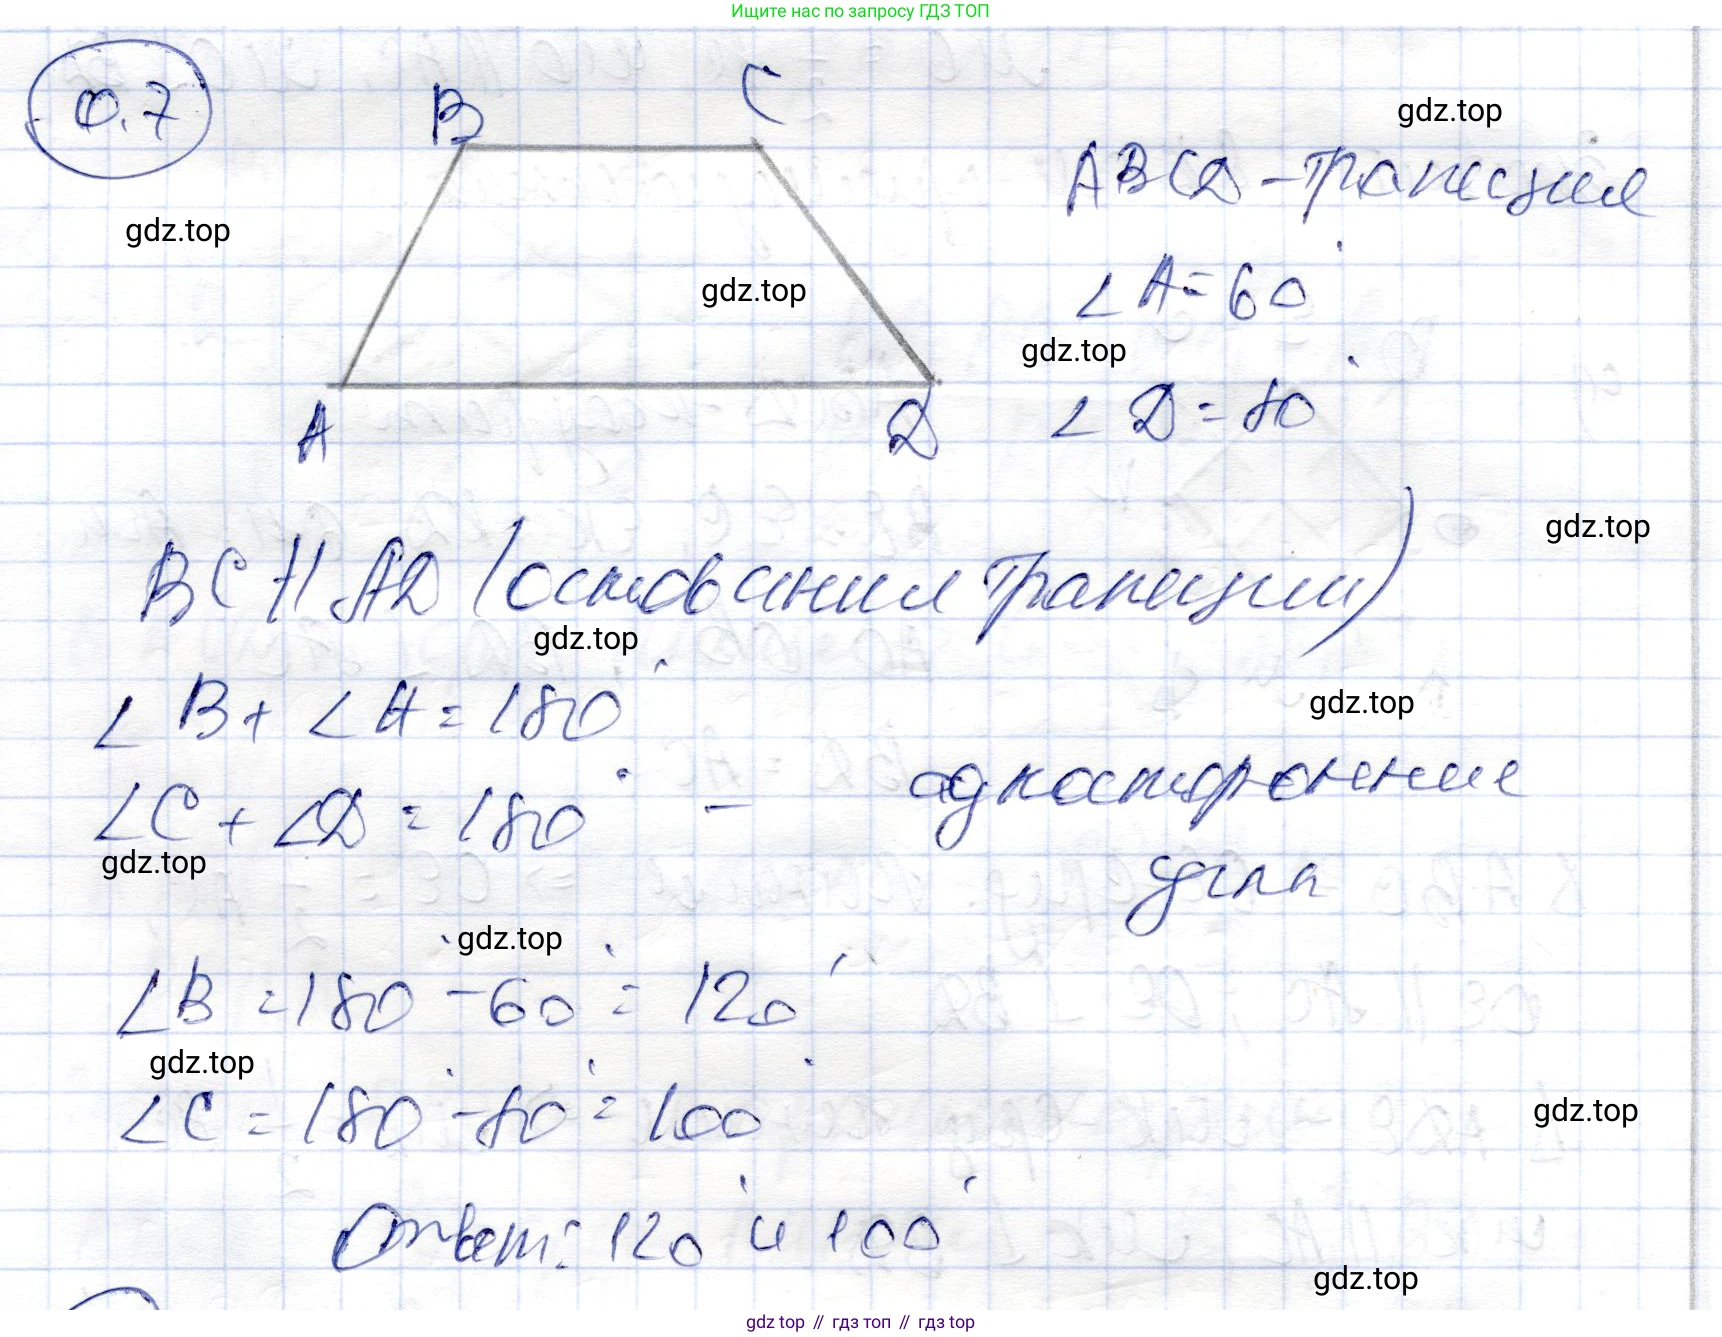 Ищите нас по запросу ГДЗ ТОП
0.7
B
C
gdz.top
ABCD - трапеция
gdz.top
∠A = 60°
gdz.top
gdz.top
∠D = 80°
A
D
gdz.top
BC || AD (основания трапеции)
gdz.top
∠B + ∠A = 180°
gdz.top
∠C + ∠D = 180° - односторонние
углы
gdz.top
gdz.top
∠B = 180° - 60° = 120°
gdz.top
∠C = 180° - 80° = 100°
gdz.top
Ответ: 120° и 100°
gdz.top
gdz top // гдз топ // гдз top